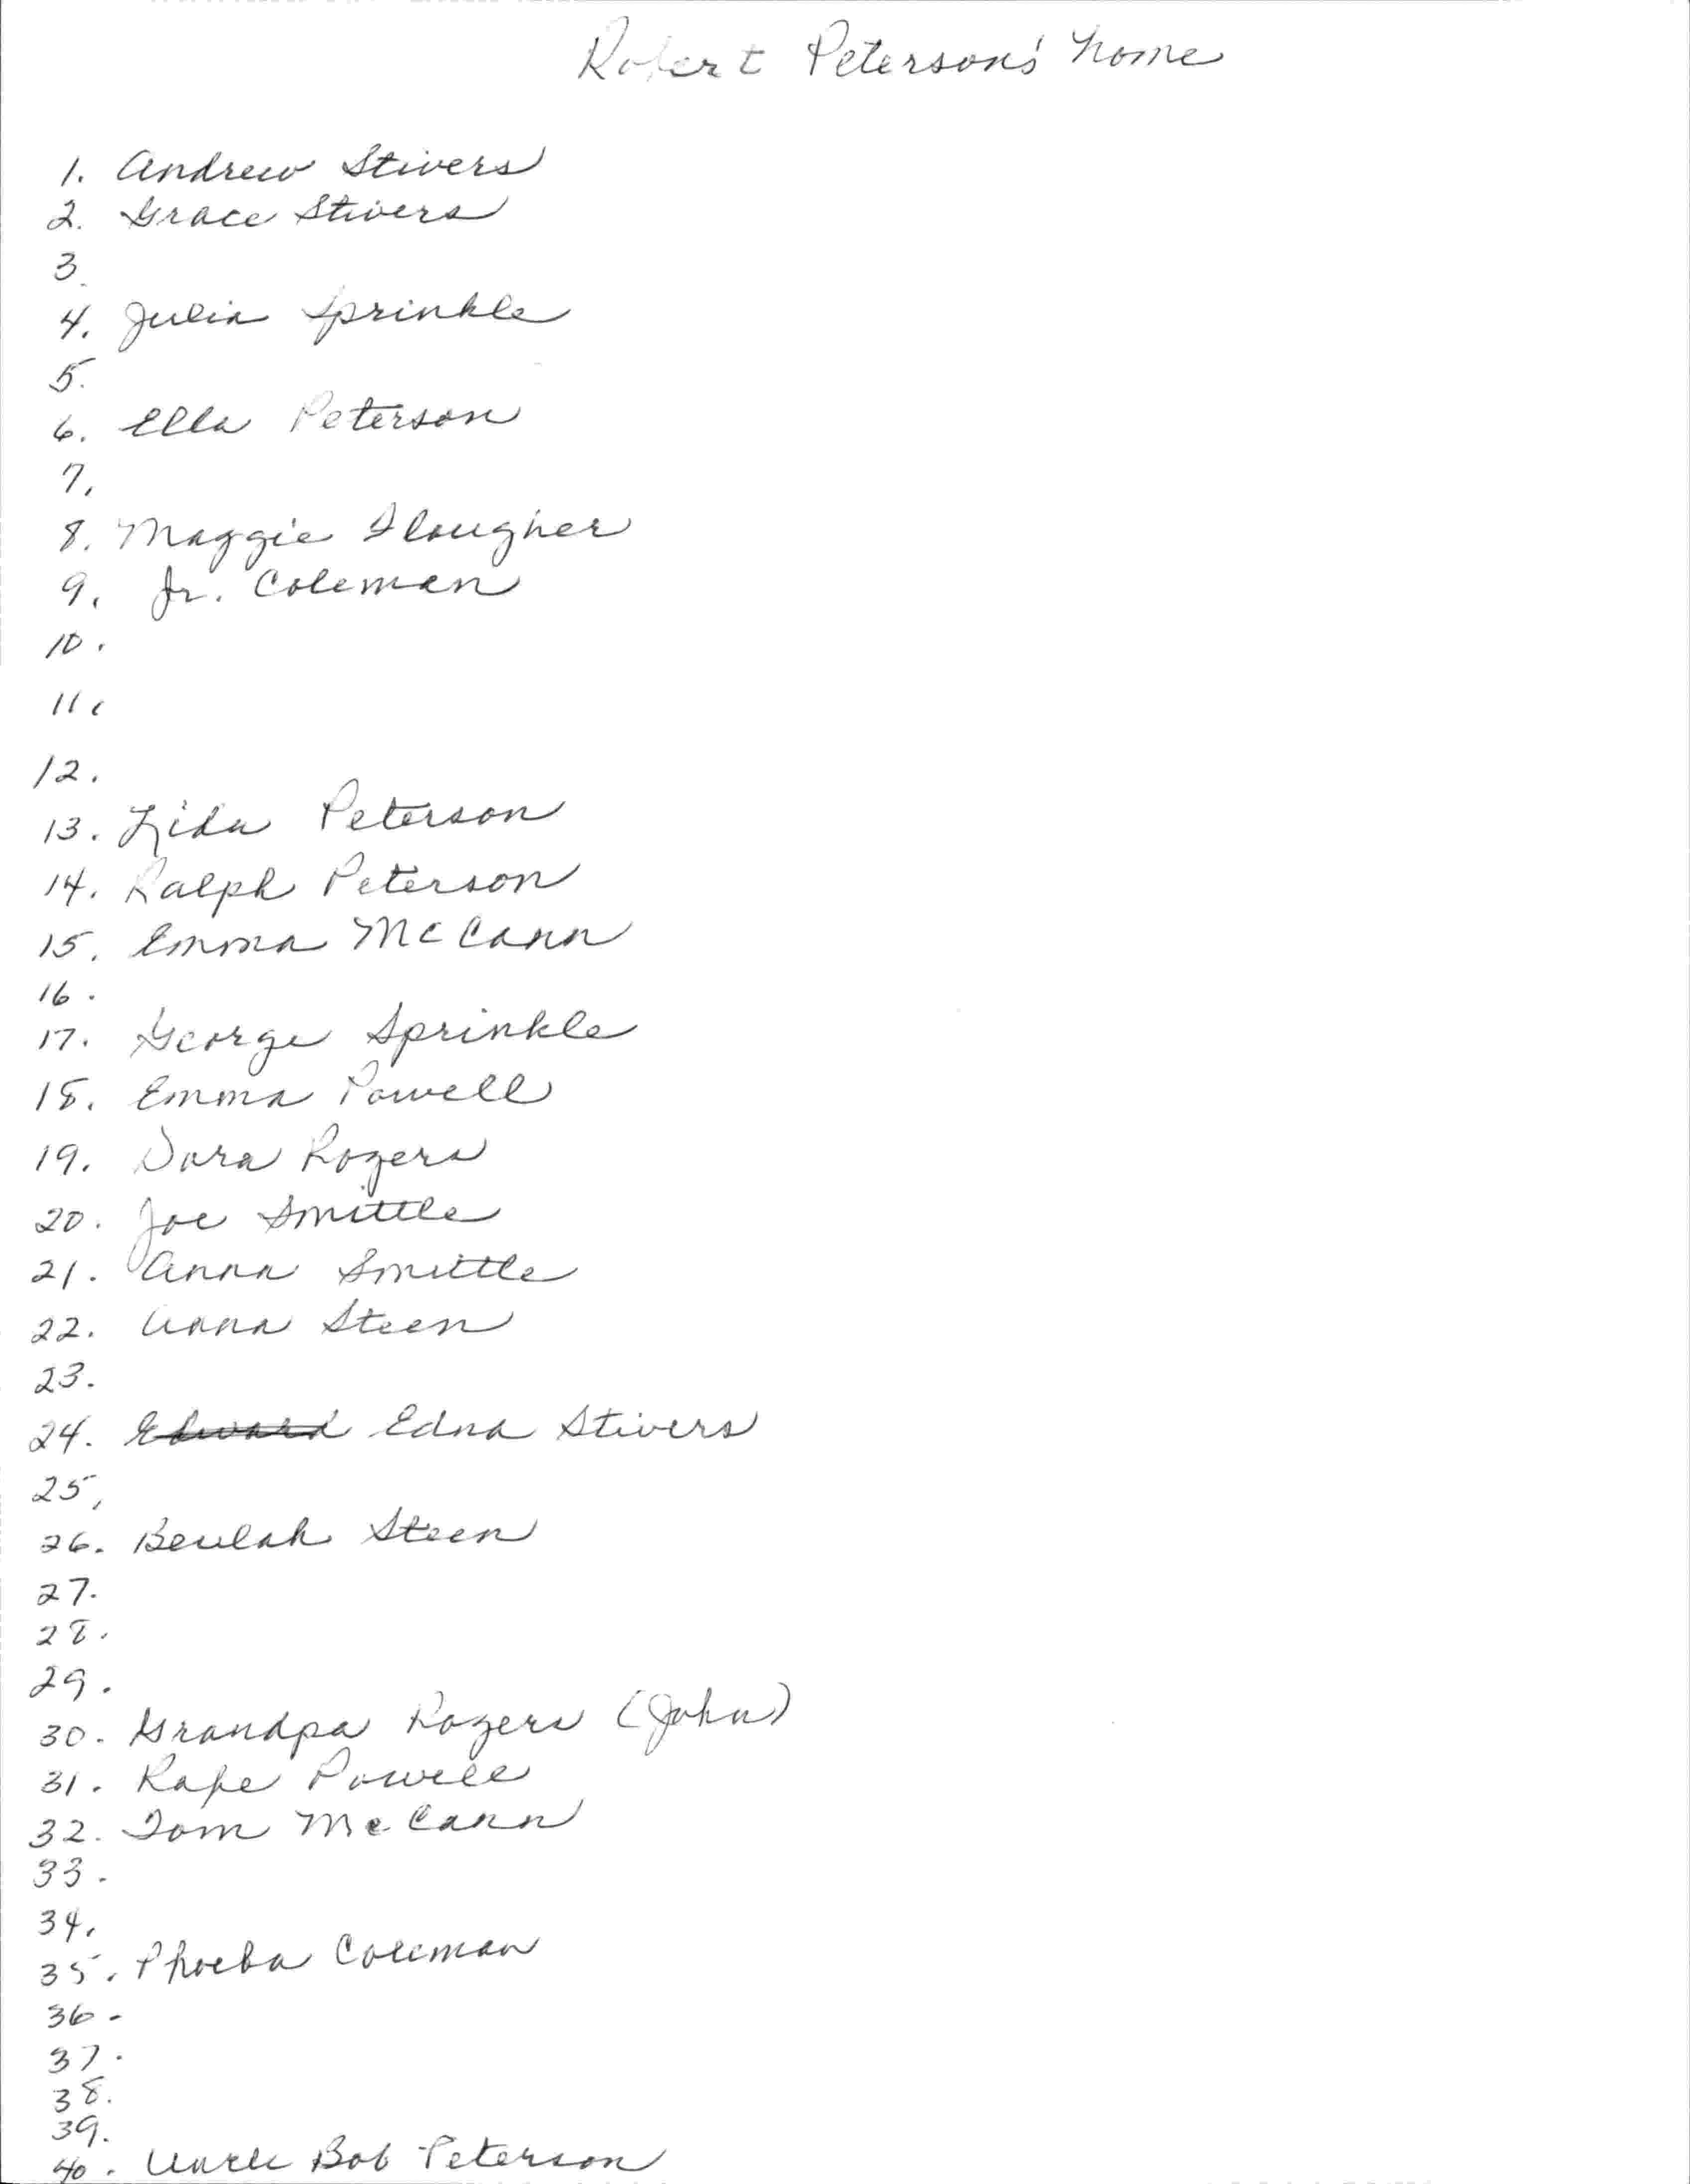 Robert Peterson's home
1. Andrew Stivers
2. Grace Stivers
3.
4. Julia Sprinkle
5.
6. Ella Peterson
7.
8. Maggie Flaugher
9. Jr. Coleman
10.
11.
12.
13. Lida Peterson
14. Ralph Peterson
15. Emma McCann
16.
17. George Sprinkle
18. Emma Powell
19. Dora Rogers
20. Joe Smittle
21. Anna Smittle
22. Anna Steen
23.
24. Edward Edna Stivers
25.
26. Beulah Steen
27.
28.
29.
30. Grandpa Rogers (John)
31. Rafe Powell
32. Tom McCann
33.
34.
35. Phoeba Coleman
36.
37.
38.
39.
40. Uncle Bob Peterson